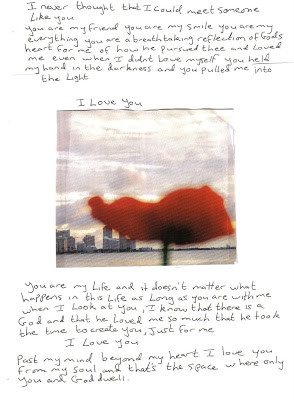 I never thought that I could meet someone
Like you
you are my friend you are my smile you are my
everything you are a breathtaking reflection of Gods
heart for me of how he pursued thee and loved
me even when I didnt Love myself you held
my hand in the darkness and you pulled me into
the Light
I Love You
You are my Life and it doesn't matter what
happens in this Life as Long as you are with me
when I Look at you, I know that there is a
God and that he Loved me so much that he took
the time to create you, Just for me
I Love you
Past my mind beyond my heart I love you
from my soul and that's the space where only
you and God dwell.